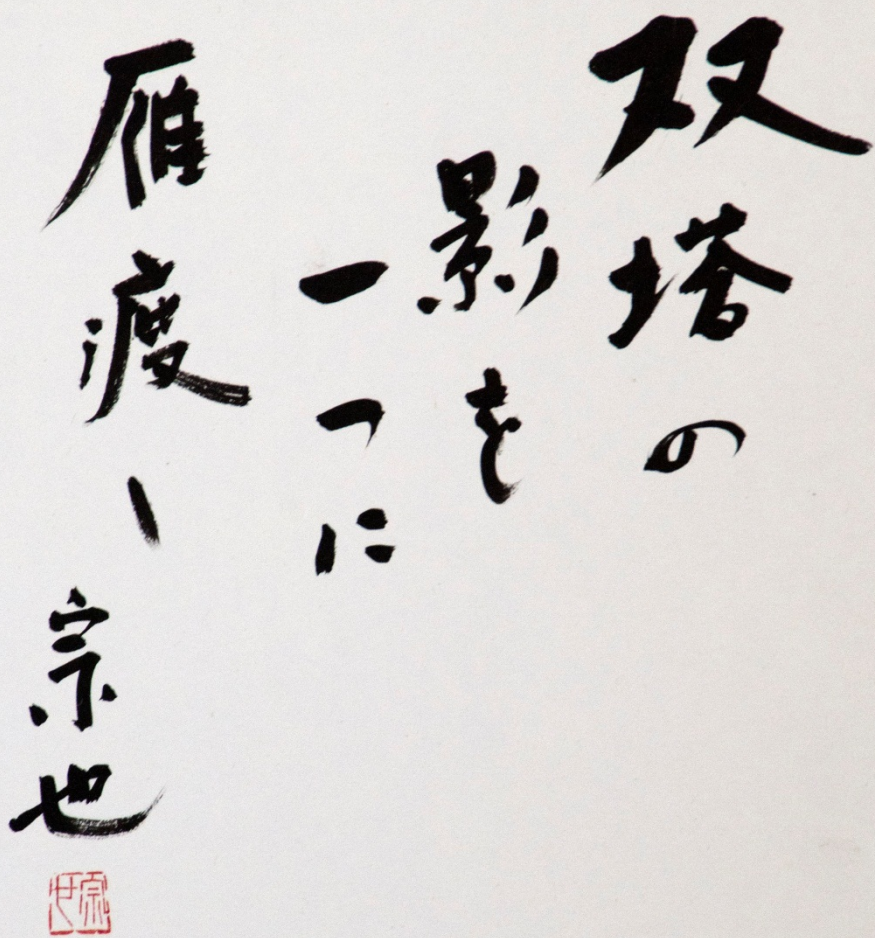 双塔の
影を
一つに
雁渡し
宗也